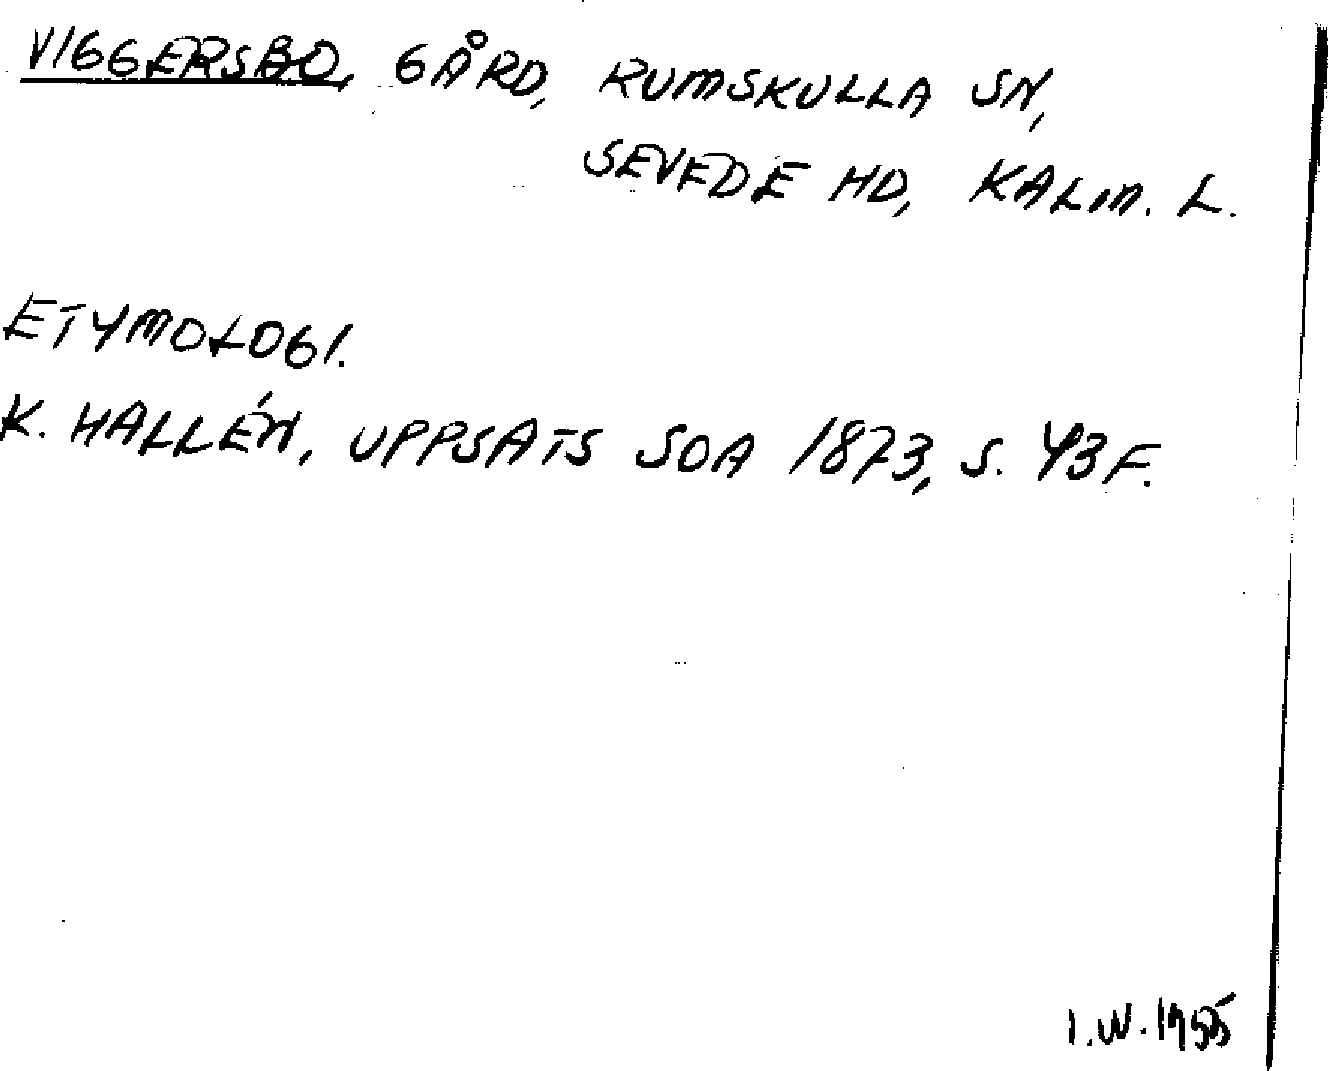 VIGGERSBO, GÅRD, RUMSKULLA SN,
SEVEDE HD, KALM. L.
ETYMOLOGI.
K. HALLÉN, UPPSATS SOA 1873, S. 43 F.
I.W. 1955